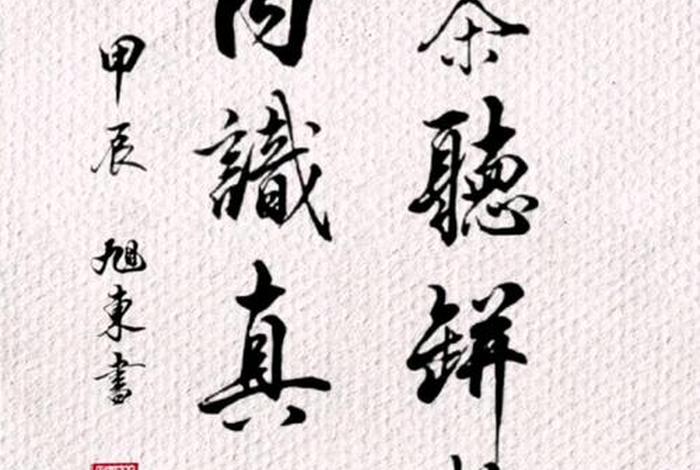 聽缾
識真
甲辰 旭東書